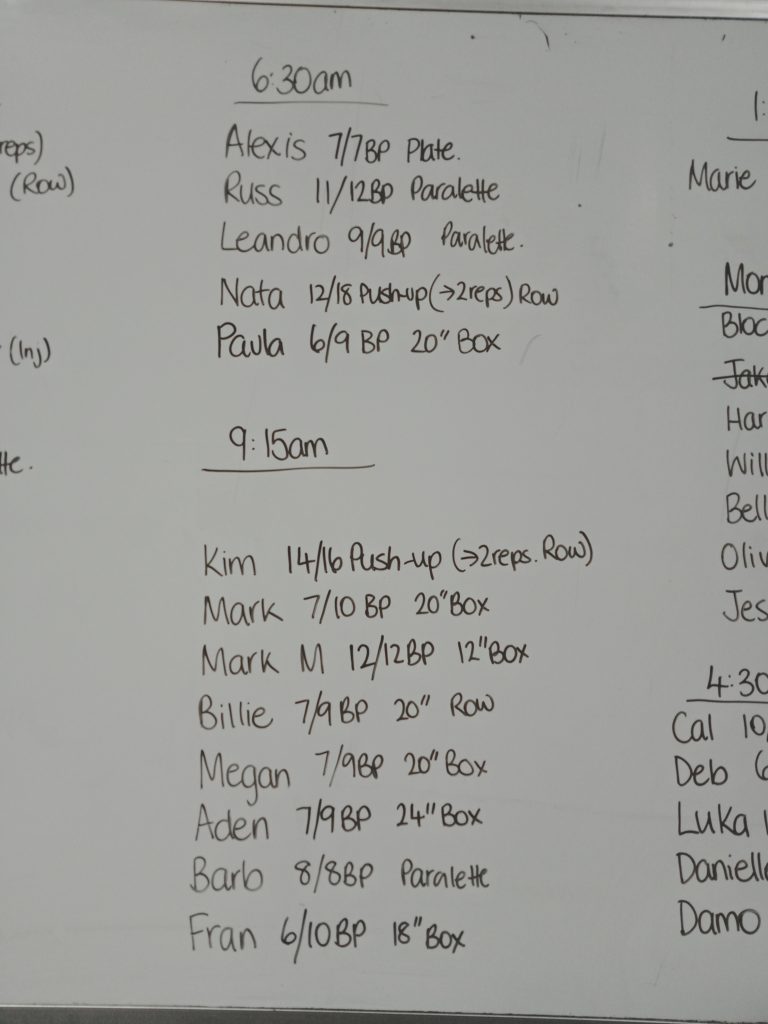 reps)
(Row)
(Inj)
6:30am
Alexis 7/7BP Plate.
Russ 11/12BP Paralette
Leandro 9/9BP Paralette.
Nata 12/18 Push-up (→2reps) Row
Paula 6/9 BP 20" Box
9:15am
Kim 14/16 Push-up (→2reps. Row)
Mark 7/10 BP 20" Box
Mark M 12/12BP 12" Box
Billie 7/9 BP 20" Row
Megan 7/9BP 20" Box
Aden 7/9BP 24" Box
Barb 8/8BP Paralette
Fran 6/10BP 18" Box
1:
Marie
Mon
Bloc
Jak
Har
Will
Bell
Oliv
Jes
4:30
Cal 10
Deb
Luka
Danielle
Damo